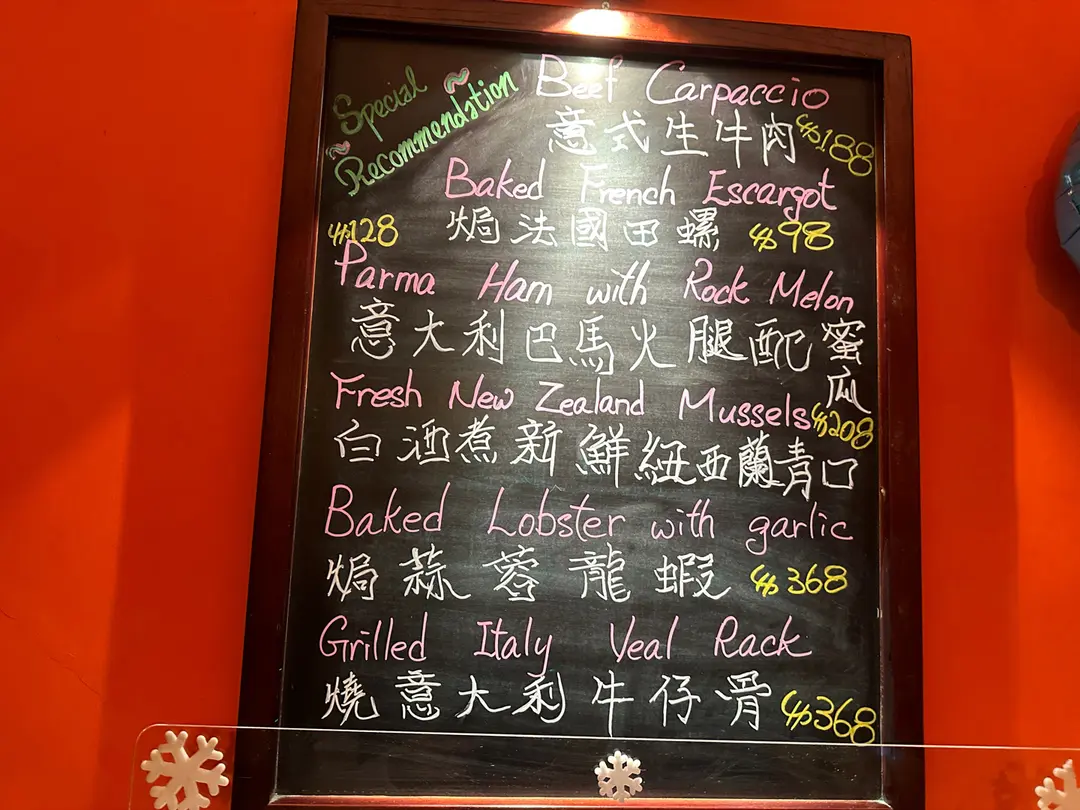 Special
Recommendation
Beef Carpaccio
意式生牛肉 $188
Baked French Escargot
焗法國田螺 $98
$128
Parma Ham with Rock Melon
意大利巴馬火腿配蜜
瓜
Fresh New Zealand Mussels $208
白酒煮新鮮紐西蘭青口
Baked Lobster with garlic
焗蒜蓉龍蝦 $368
Grilled Italy Veal Rack
燒意大利牛仔骨 $368